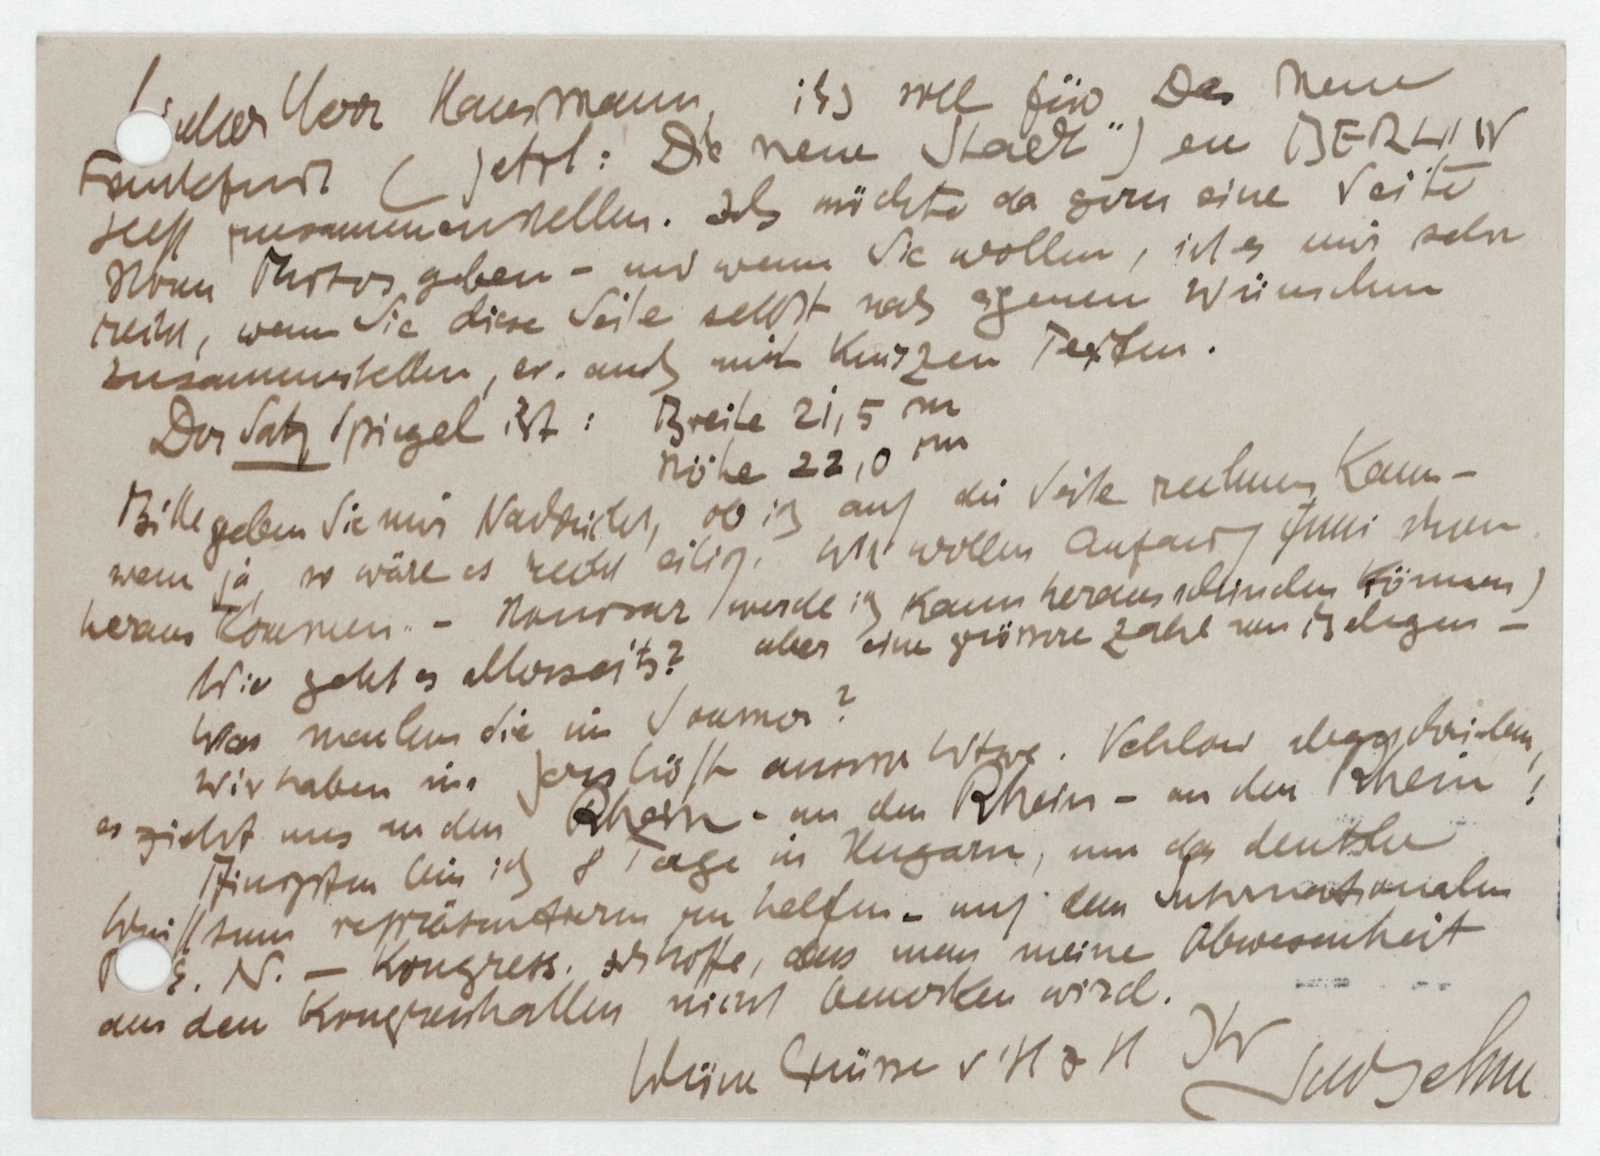 Lieber Herr Hausmann, ich soll für Das Neue
Frankfurt (jetzt: Die neue Stadt") ein BERLIN
Heft zusammenstellen. Ich möchte da gern eine Seite
Ihren Photos geben - und wenn Sie wollen, ist es mir sehr
recht, wenn Sie diese Seite selbst nach eigenen Wünschen
zusammenstellen, ev. auch mit kurzen Texten.
Der Satzspiegel ist: Breite 21,5 cm
Höhe 22,0 cm
Bitte geben Sie mir Nachricht, ob ich auf die Seite rechnen kann -
wenn ja, so wäre es recht eilig. Wir wollen Anfang Juni schon
heraus kommen. - Honorar werde ich kaum herausschinden können,
aber eine grössere Zahl von Belegen -
Wie geht es allerseits?
Was machen Sie im Sommer?
Wir haben in Jershöft unsere Witwe Vehlow abgeschrieben,
es zieht uns an den Rhein - an den Rhein - an den Rhein!
Pfingsten bin ich 8 Tage in Ungarn, um das deutsche
Schrifttum repräsentieren zu helfen - auf dem Internationalen
P.E.N. - Kongress. Ich hoffe, dass man meine Abwesenheit
aus den Kongresshallen nicht bemerken wird.
Schöne Grüsse v. H z H Ihr